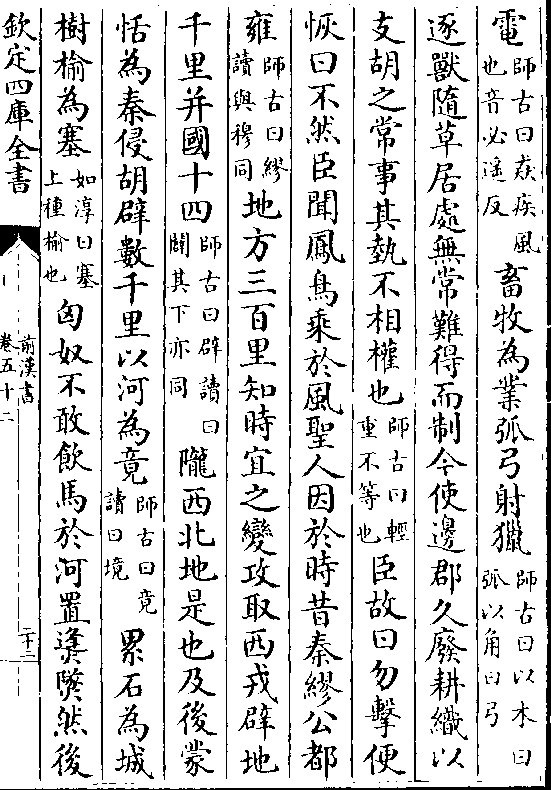 電師古曰猋疾風也音必遥反畜牧為業弧弓射獵師古曰以木曰弧以角曰弓
逐獸隨草居處無常難得而制今使邊郡久廢耕織以
支胡之常事其埶不相權也師古曰輕重不等也臣故曰勿擊便
恢曰不然臣聞鳳鳥乘於風聖人因於時昔秦繆公都
雍師古曰繆讀與穆同地方三百里知時宜之變攻取西戎辟地
千里并國十四師古曰辟讀曰闢其下亦同隴西北地是也及後蒙
恬為秦侵胡辟數千里以河為竟師古曰竟讀曰境累石為城
樹榆為塞如淳曰塞上種榆也匈奴不敢飲馬於河置㷭㸂然後
欽定四庫全書
前漢書
卷五十二
二十三